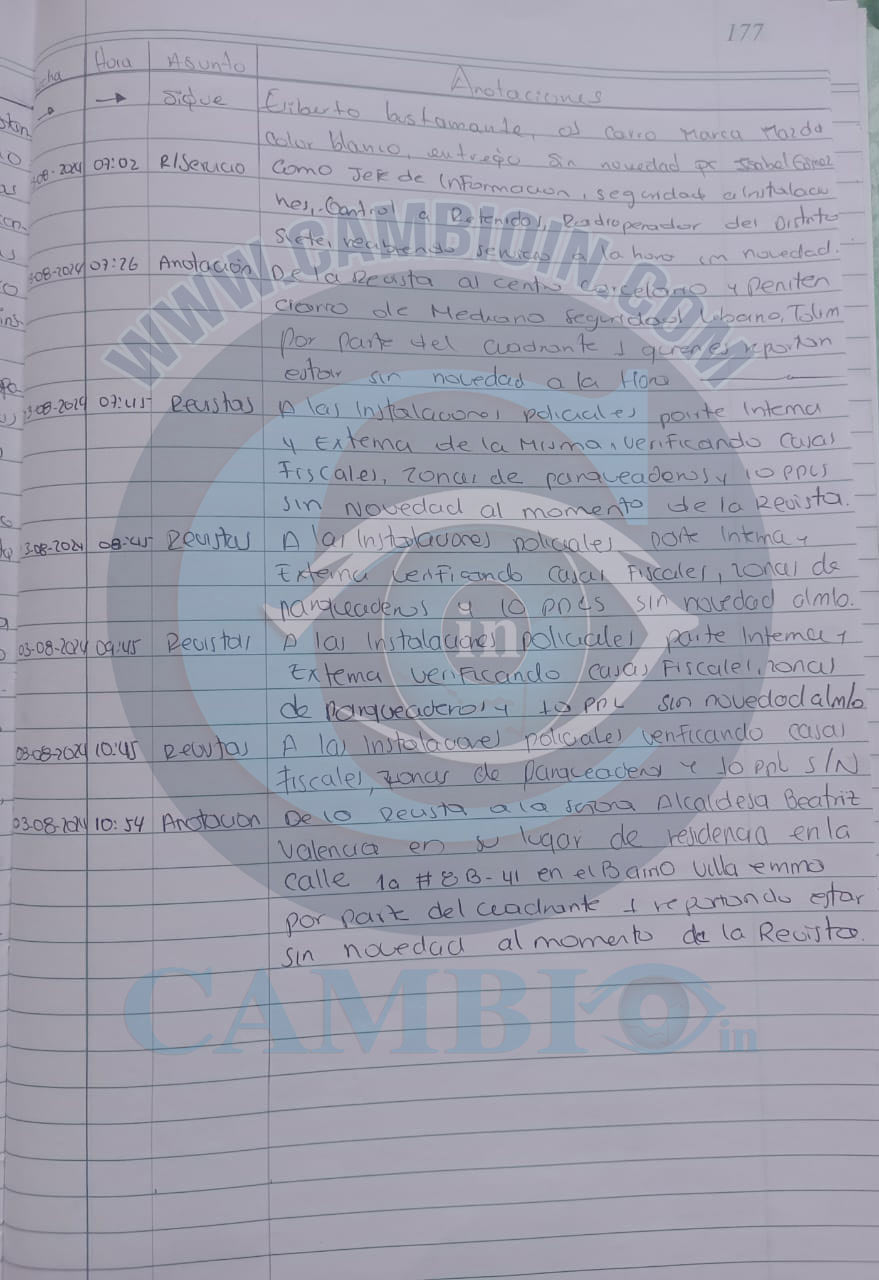 177
Fecha Hora Asunto Anotaciones
→ → Sigue Eriberto bustamante, os carro Marca Mazda
Color blanco, entrego sin novedad pt Isabel Gómez
08-2024 07:02 R/Servicio Como Jefe de Informacion, seguridad a instalacio
nes, Control a Retenidos, Radioperador del Distrito
Siete, recibiendo servicio a la hora sin novedad.
3-08-2024 07:26 Anotación De la Revista al centro Carcelario y peniten
ciario de Mediana Seguridad Libano, Tolim
por parte del cuadrante 1 quienes reportan
estar sin novedad a la Hora
3-08-2024 07:45 Revistas A las instalaciones policiales parte Interna
y Externa de la Misma, verificando Casas
Fiscales, zonas de parqueaderos y 10 PPLS
sin Novedad al momento de la Revista.
3-08-2024 08:45 Revistas A las Instalaciones policiales parte Interna y
Externa verificando casas Fiscales, zonas de
parqueaderos y 10 PPLS sin novedad almto.
03-08-2024 09:45 Revistas A las Instalaciones policiales parte Interna y
Externa verificando casas Fiscales, zonas
de parqueaderos y 10 PPL sin novedad almto
03-08-2024 10:45 Revistas A las Instalaciones policiales verificando casas
fiscales, zonas de parqueaderos y 10 ppl S/N
03-08-2024 10:54 Anotacion De la Revista a la señora Alcaldesa Beatriz
Valencia en su lugar de residencia en la
calle 1a # 8B-41 en el Barrio Villa emma
por parte del cuadrante 1 reportando estar
sin novedad al momento de la Revista.
WWW.CAMBIOIN.COM
in
CAMBIO in